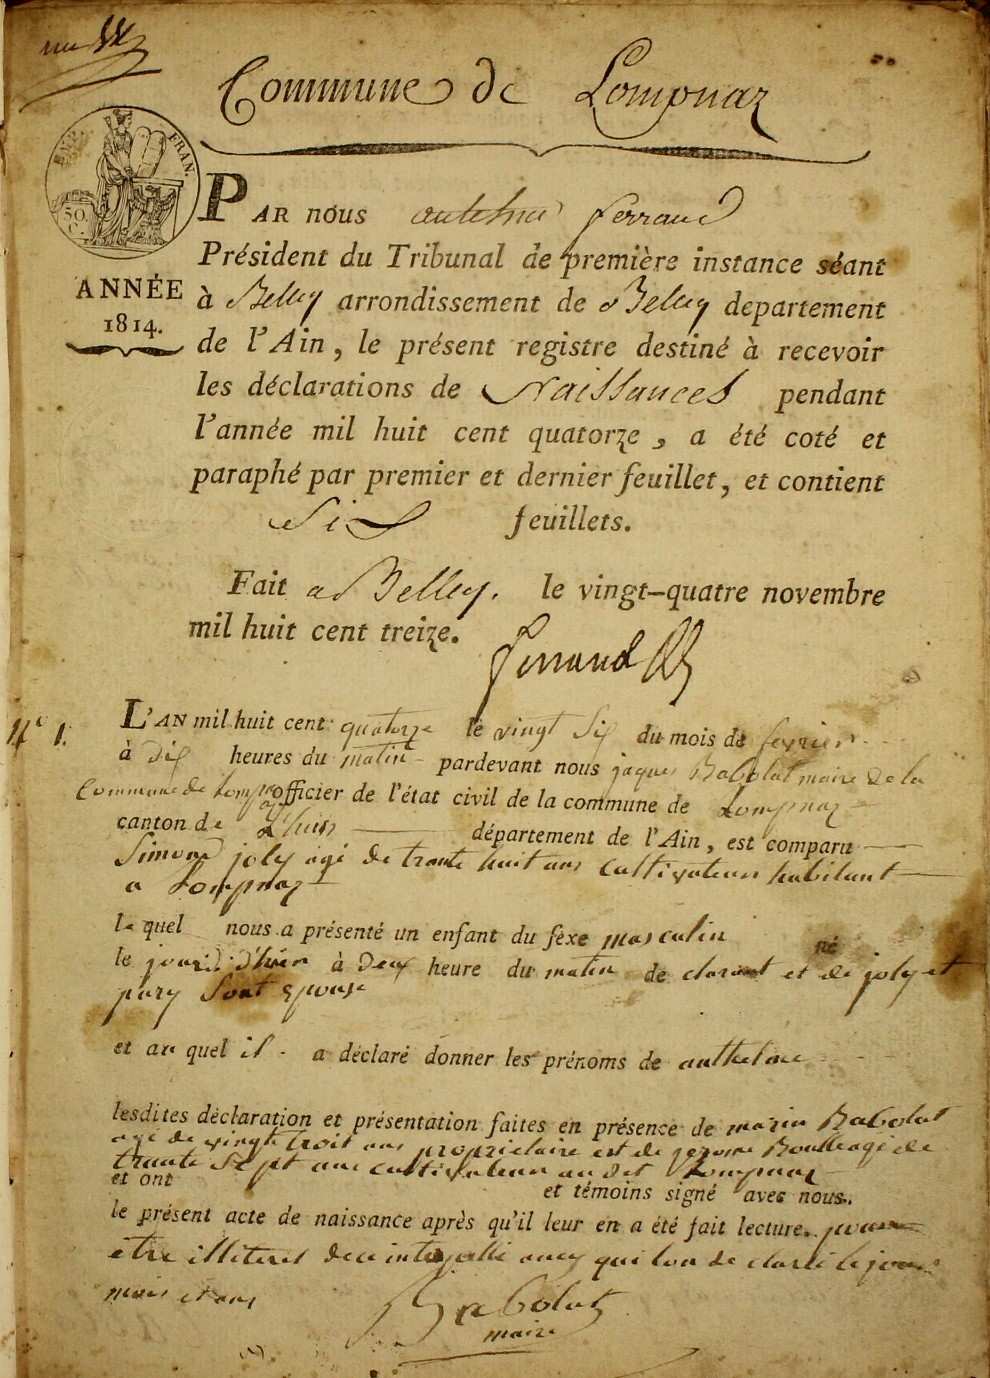 Commune de Lompnaz
EMP. FRAN.
50.
C.
ANNÉE
1814.
PAR nous anthelme ferrand
Président du Tribunal de première instance séant
à Belley arrondissement de Belley departement
de l'Ain, le présent registre destiné à recevoir
les déclarations de Naissances pendant
l'année mil huit cent quatorze, a été coté et
paraphé par premier et dernier feuillet, et contient
Six feuillets.
Fait a Belley. le vingt-quatre novembre
mil huit cent treize.
ferrand
N.º 1.
L'AN mil huit cent quatorze le vingt Six du mois de fevrier
à dix heures du matin pardevant nous jaques Babolat maire de la
Commune de Lompnaz officier de l'état civil de la commune de Lompnaz
canton de Lhuis département de l'Ain, est comparu
Simond joly agé de trante huit ans cultivateur habitant
a Lompnaz
le quel nous a présenté un enfant du sexe masculin
né
le jour d'hier à deux heure du matin de clarant et de joly et
pary Sont epouse
et au quel il a déclaré donner les prénoms de anthelme
lesdites déclaration et présentation faites en présence de marin Babolat
agé de vingt troit ans proprietaire est de jerome Boullu agé de
trante Sept ans cultivateur au dit Lompnaz
et ont et témoins signé avec nous.
le présent acte de naissance après qu'il leur en a été fait lecture. pour
etre illiteret de ce qui lon de claré le jour
mois et ans
Babolat
maire